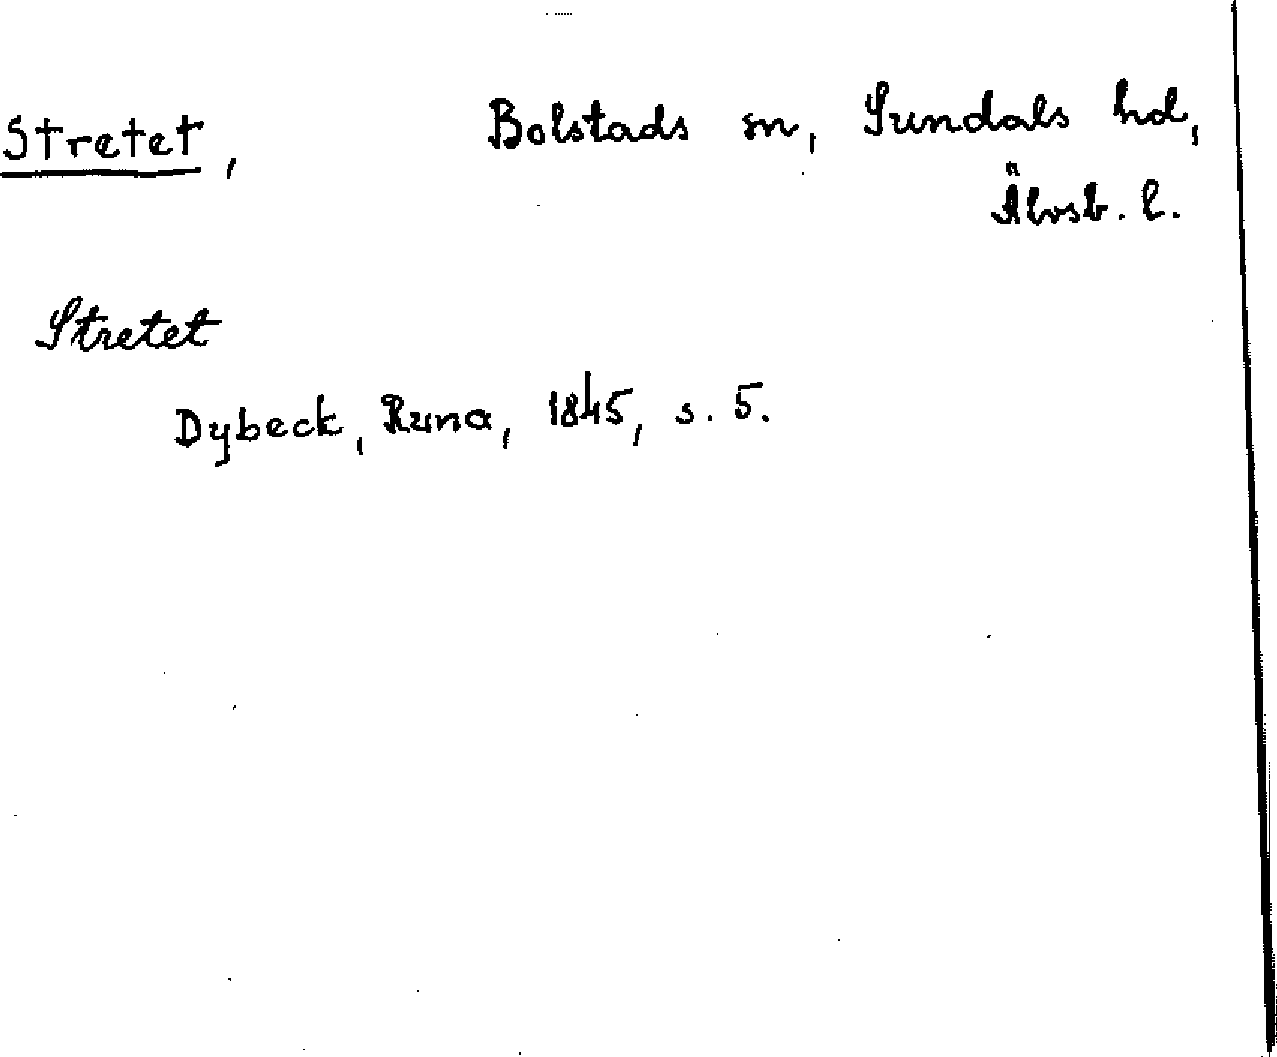 Stretet, Bolstads sn, Sundals hd,
Älvsb. l.
Stretet
Dybeck, Runa, 1845, s. 5.